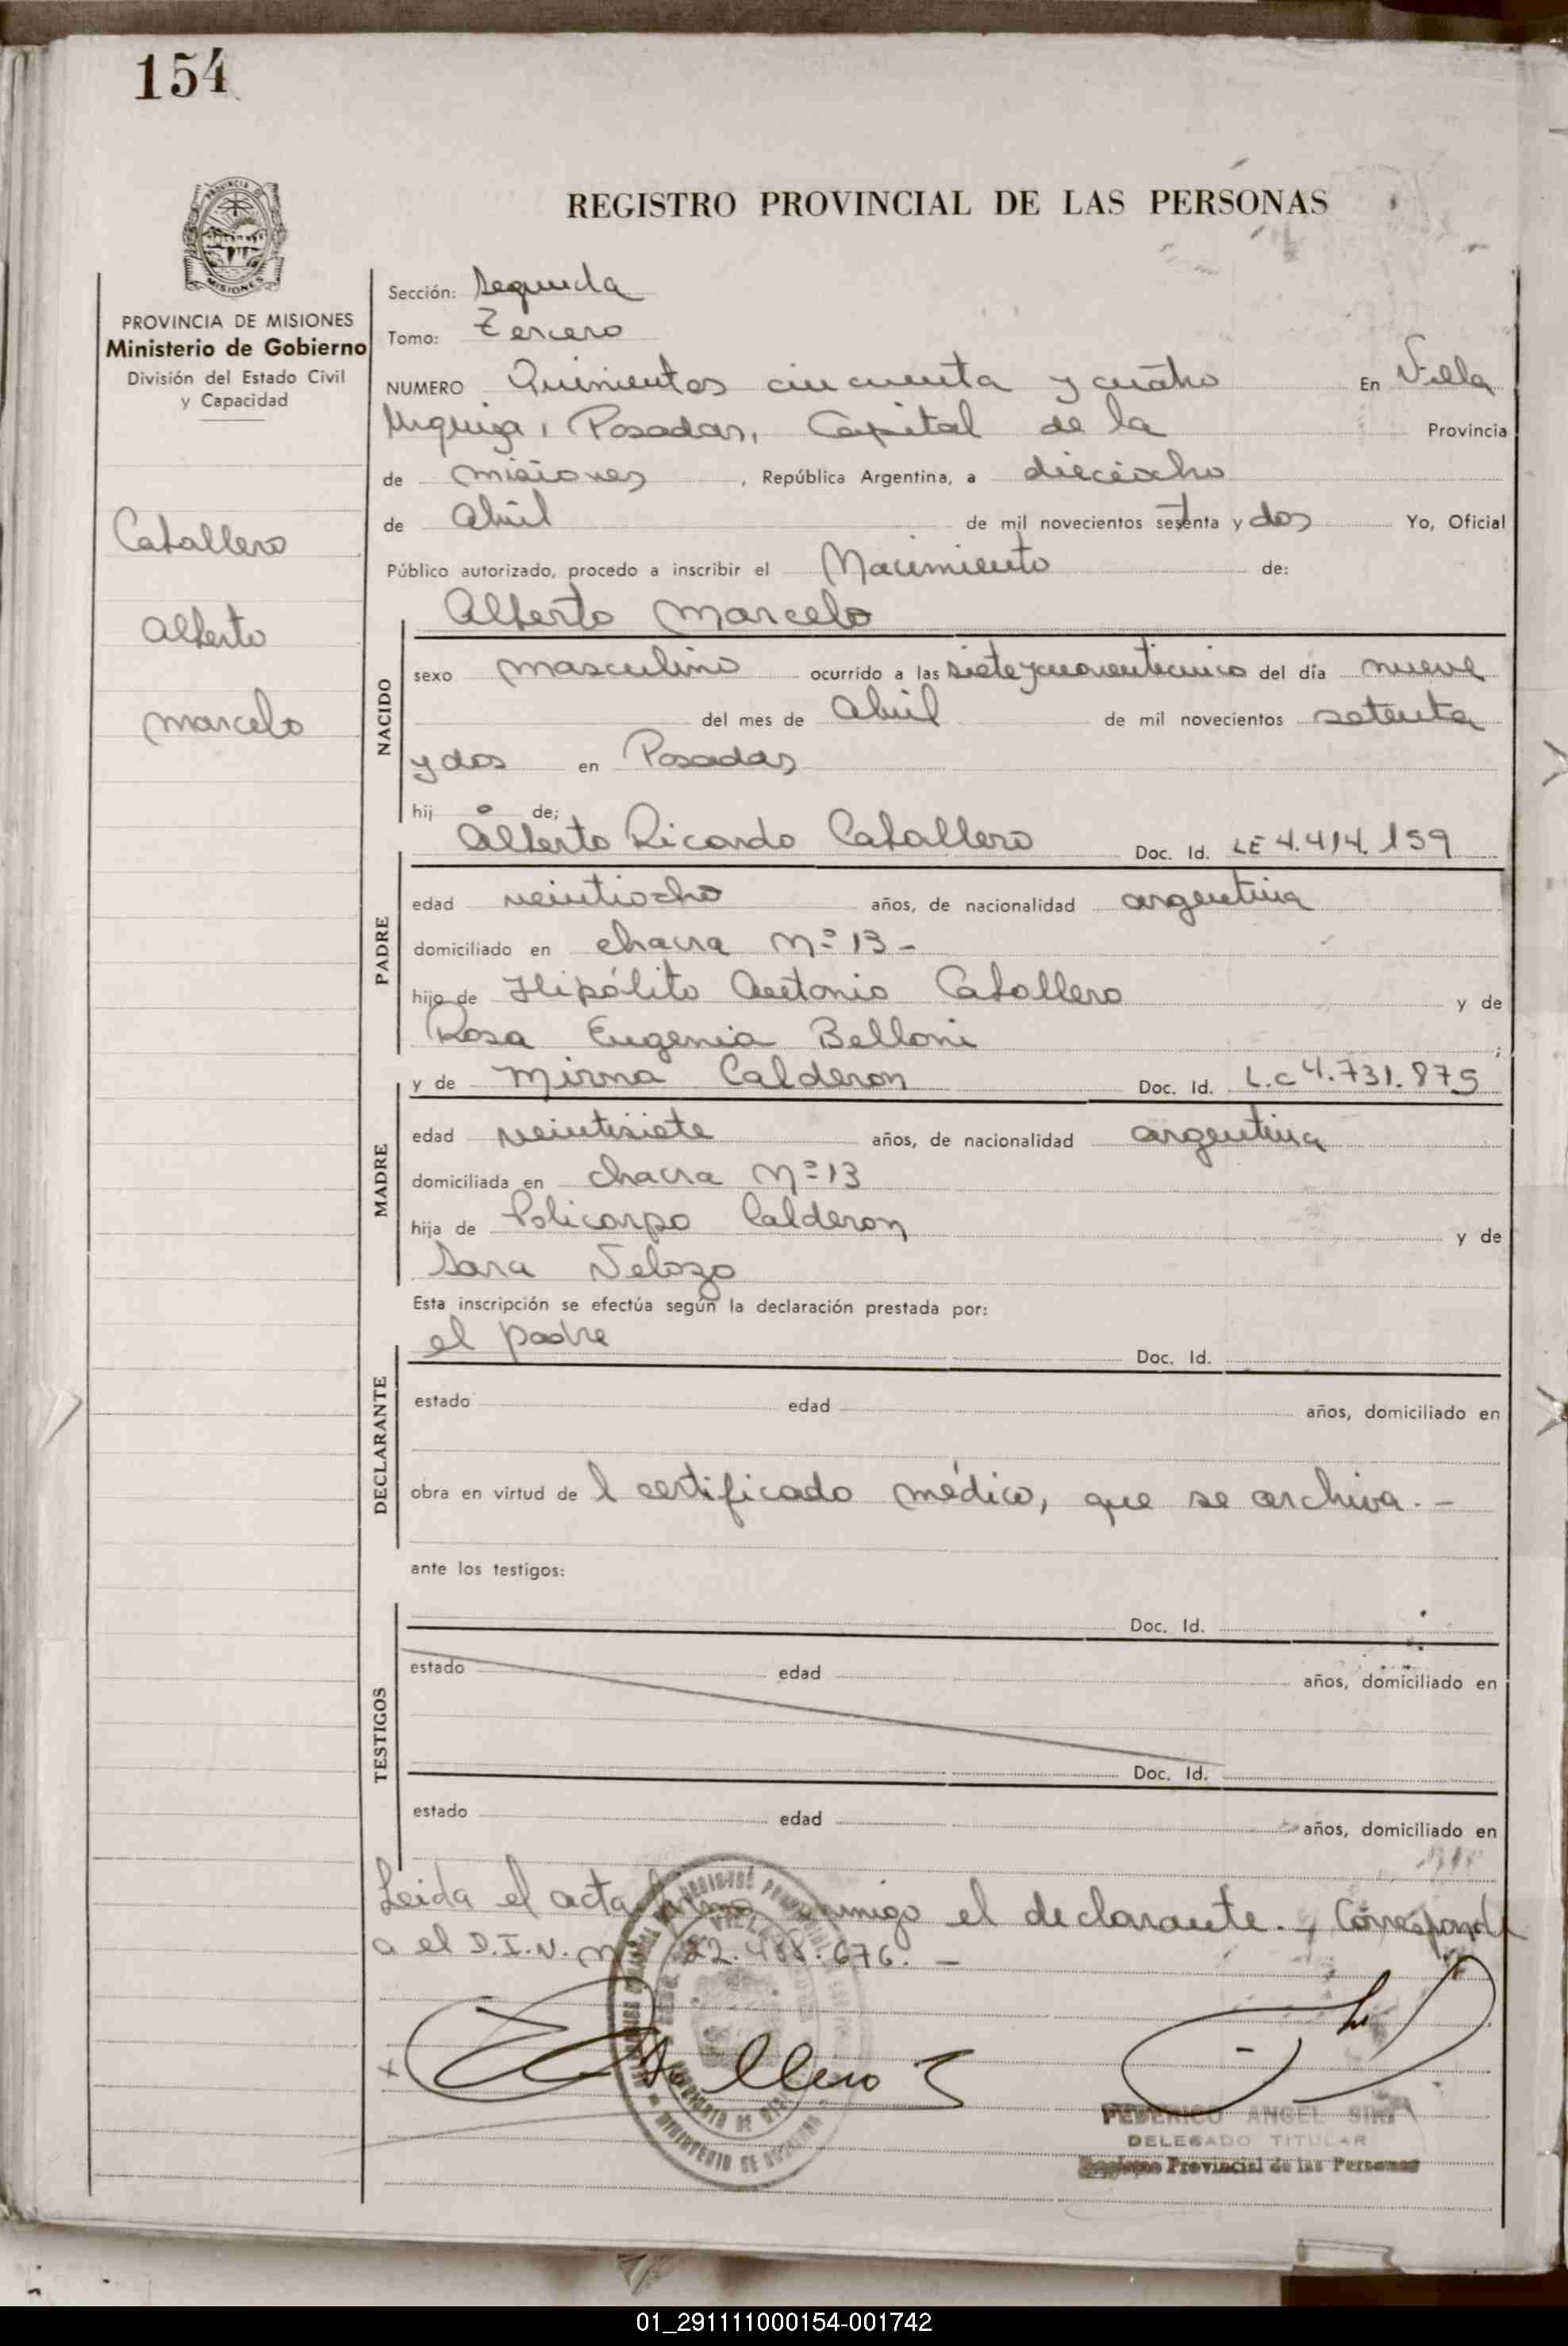 154
REGISTRO PROVINCIAL DE LAS PERSONAS
PROVINCIA DE
MISIONES
PROVINCIA DE MISIONES
Ministerio de Gobierno
División del Estado Civil
y Capacidad
Caballero
Alberto
Marcelo
Sección: Segunda
Tomo: Tercero
NUMERO Quinientos cincuenta y cuatro En Villa
Urquiza, Posadas, Capital de la Provincia
de Misiones, República Argentina, a dieciocho
de Abril de mil novecientos setenta y dos Yo, Oficial
Público autorizado, procedo a inscribir el Nacimiento de:
Alberto Marcelo
NACIDO
sexo masculino ocurrido a las siete y cuarenticinco del día nueve
del mes de Abril de mil novecientos setenta
y dos en Posadas
hijo de;
Alberto Ricardo Caballero Doc. Id. LE 4.414.159
PADRE
edad veintiocho años, de nacionalidad argentina
domiciliado en chacra Nº 13 -
hijo de Hipólito Antonio Caballero y de
Rosa Eugenia Belloni ;
y de Mirna Calderon Doc. Id. L.C 4.731.875
MADRE
edad veintisiete años, de nacionalidad argentina
domiciliada en chacra Nº 13
hija de Policarpo Calderon y de
Sara Velozo
Esta inscripción se efectúa según la declaración prestada por:
el padre Doc. Id.
DECLARANTE
estado edad años, domiciliado en
obra en virtud del certificado médico, que se archiva. -
ante los testigos:
Doc. Id.
TESTIGOS
estado edad años, domiciliado en
Doc. Id.
estado edad años, domiciliado en
Leida el acta firma conmigo el declarante. , Corresponde
a el D.I.N. Nº 22.488.676. -
Caballero
FEDERICO ANGEL
DELEGADO TITULAR
Registro Provincial de las Personas
01_291111000154-001742